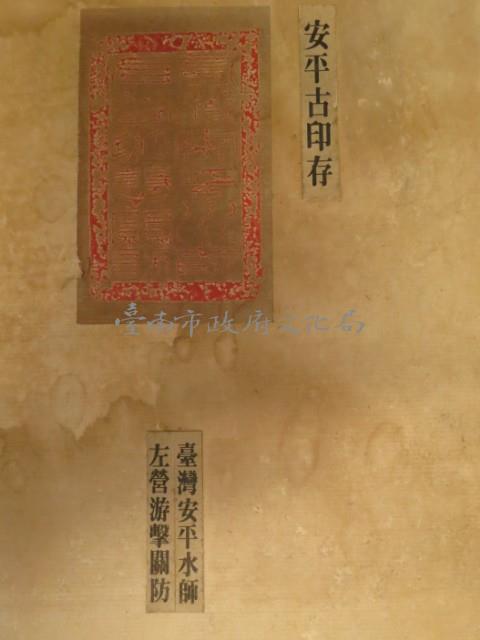 安平古印存
臺灣安平水師
左營游擊關防
臺南市政府文化局